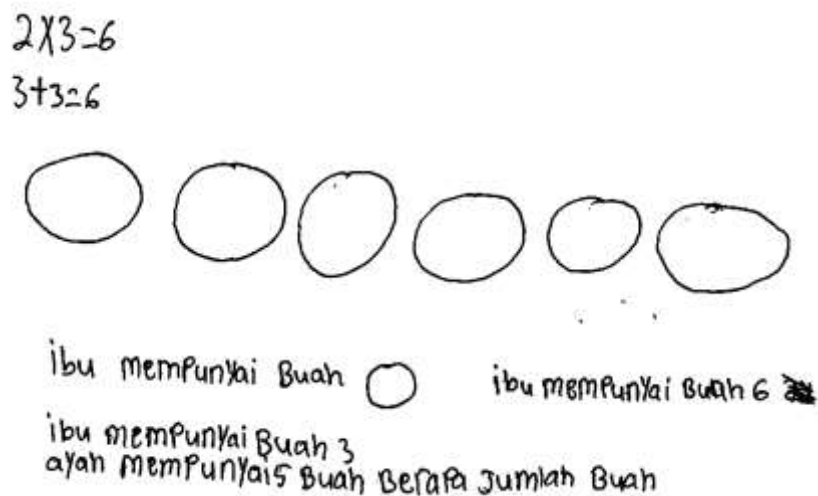 2x3=6
3+3=6
ibu mempunyai Buah
ibu mempunyai Buah 6
ibu mempunyai Buah 3
ayah mempunyai 5 Buah Berapa Jumlah Buah